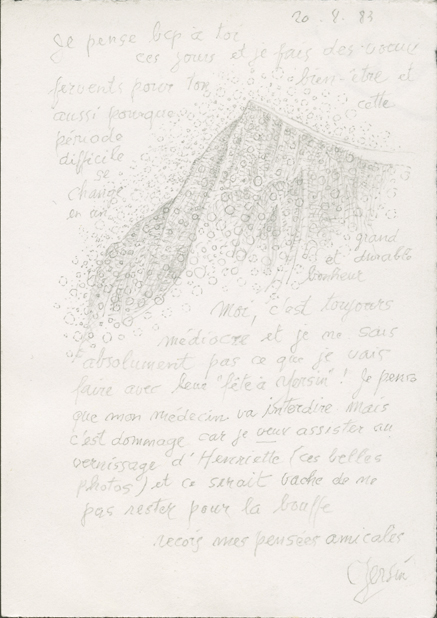 20.8.83
Je pense bcp à toi
ces jours et je fais des voeux
fervents pour ton bien-être et
aussi pourque cette
période
difficile
se
change
en un
grand
et durable
bonheur
Moi, c'est toujours
médiocre et je ne sais
absolument pas ce que je vais
faire avec leur "fête à Yersin"! Je pense
que mon médecin va interdire mais
c'est dommage car je veux assister au
vernissage d'Henriette (ces belles
photos) et ce serait vache de ne
pas rester pour la bouffe
reçois mes pensées amicales
Yersin